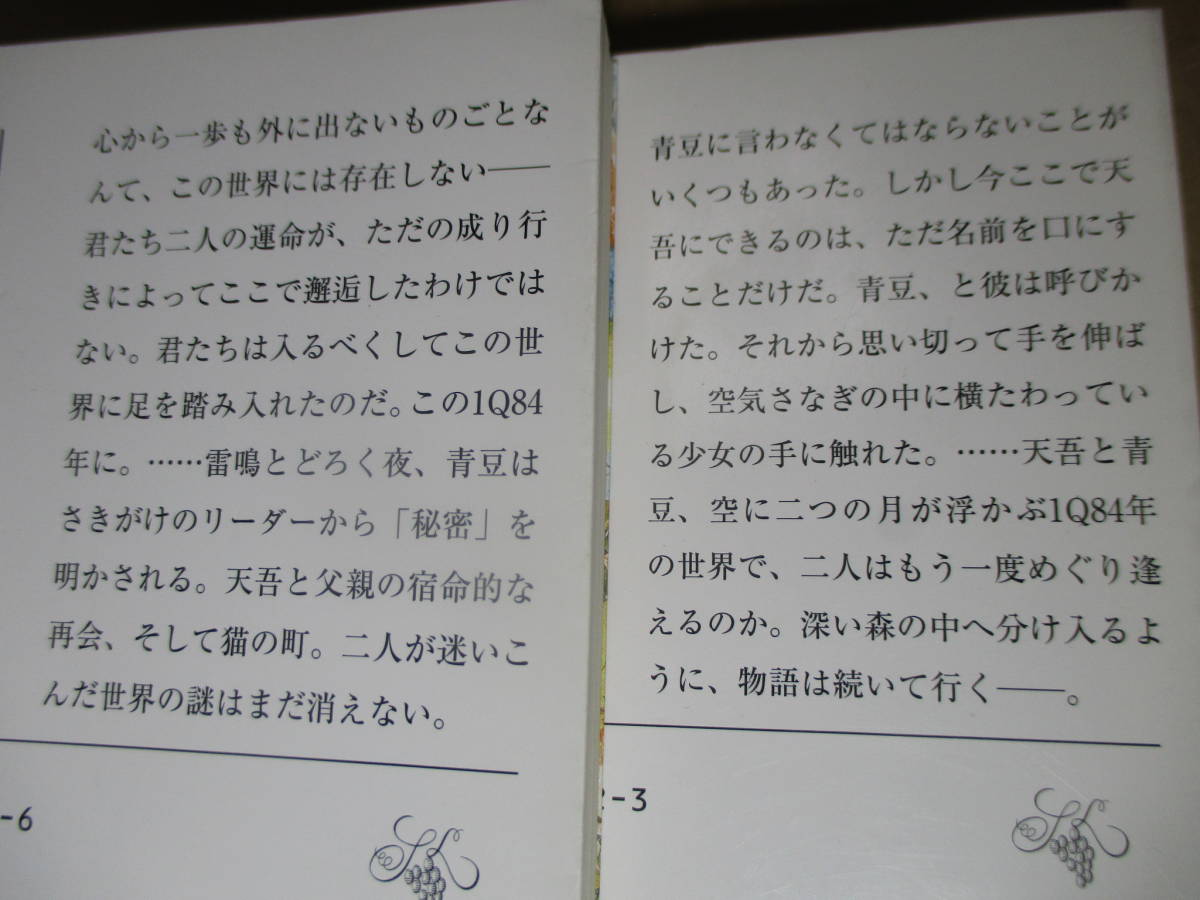 心から一歩も外に出ないものごとな
んて、この世界には存在しない――
君たち二人の運命が、ただの成り行
きによってここで邂逅したわけでは
ない。君たちは入るべくしてこの世
界に足を踏み入れたのだ。この1Q84
年に。……雷鳴とどろく夜、青豆は
さきがけのリーダーから「秘密」を
明かされる。天吾と父親の宿命的な
再会、そして猫の町。二人が迷いこ
んだ世界の謎はまだ消えない。
-6
青豆に言わなくてはならないことが
いくつもあった。しかし今ここで天
吾にできるのは、ただ名前を口にす
ることだけだ。青豆、と彼は呼びか
けた。それから思い切って手を伸ば
し、空気さなぎの中に横たわってい
る少女の手に触れた。……天吾と青
豆、空に二つの月が浮かぶ1Q84年
の世界で、二人はもう一度めぐり逢
えるのか。深い森の中へ分け入るよ
うに、物語は続いて行く――。
2-3